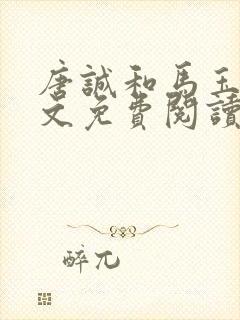 唐誠和馬玉
文免費閱讀
醉兀